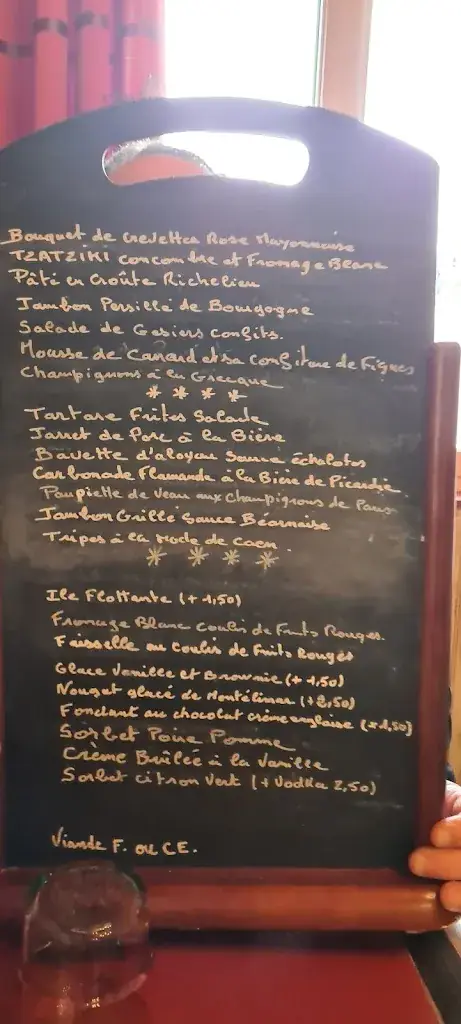 Bouquet de Crevettes Rose Mayonnaise
TZATZIKI concombre et Fromage Blanc
Pâté en Croûte Richelieu
Jambon Persillé de Bourgogne
Salade de Gesiers Confits.
Mousse de Canard et sa confiture de Figues
Champignons à la Grecque
* * * *
Tartare Frites Salade
Jarret de Porc à la Bière
Bavette d'aloyau Sauce échalotes
Carbonade Flamande à la Bière de Picardie
Paupiette de Veau aux Champignons de Paris
Jambon Grillé Sauce Béarnaise
Tripes à la Mode de Caen.
* * * *
Ile Flottante (+ 1,50)
Fromage Blanc coulis de Fruits Rouges.
Faisselle au coulis de Fruits Rouges
Glace Vanille et Brownie (+ 1,50)
Nougat glacé de Montélimar (+2,50)
Fondant au chocolat crème anglaise (+1,50)
Sorbet Poire Pomme
Crème Brûlée à la Vanille
Sorbet citron vert (+ Vodka 2,50)
Viande F. ou CE.